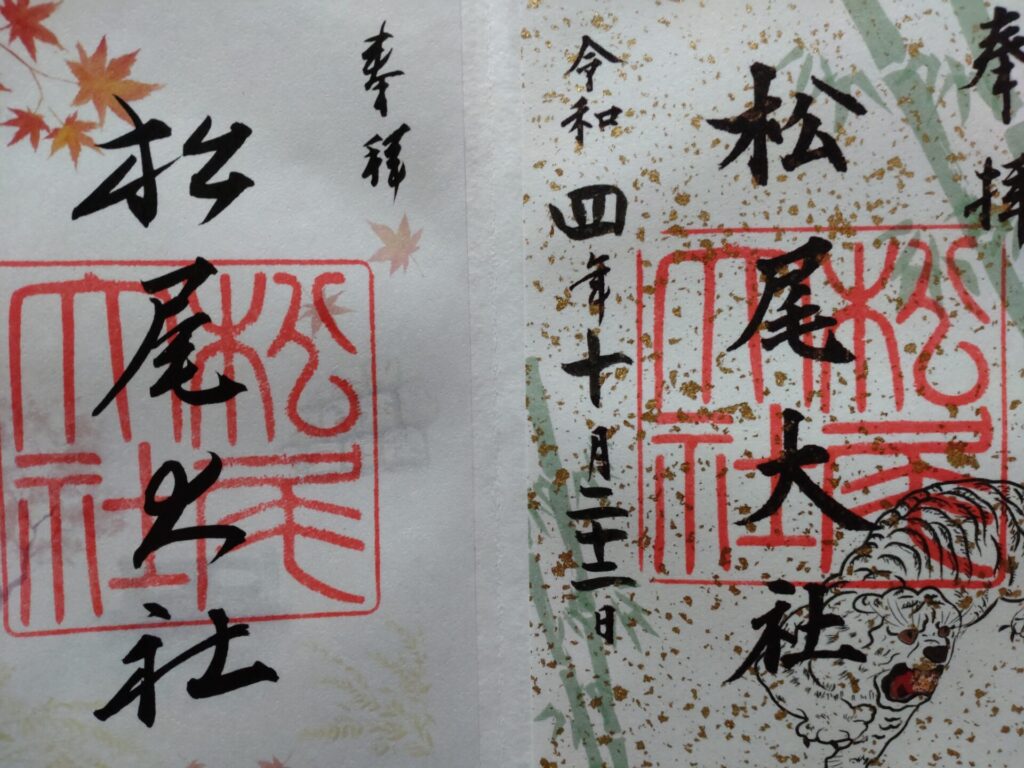 奉拝
松尾大社
令和四年十月二十二日
松尾大社
奉拝
松尾大社
松尾大社